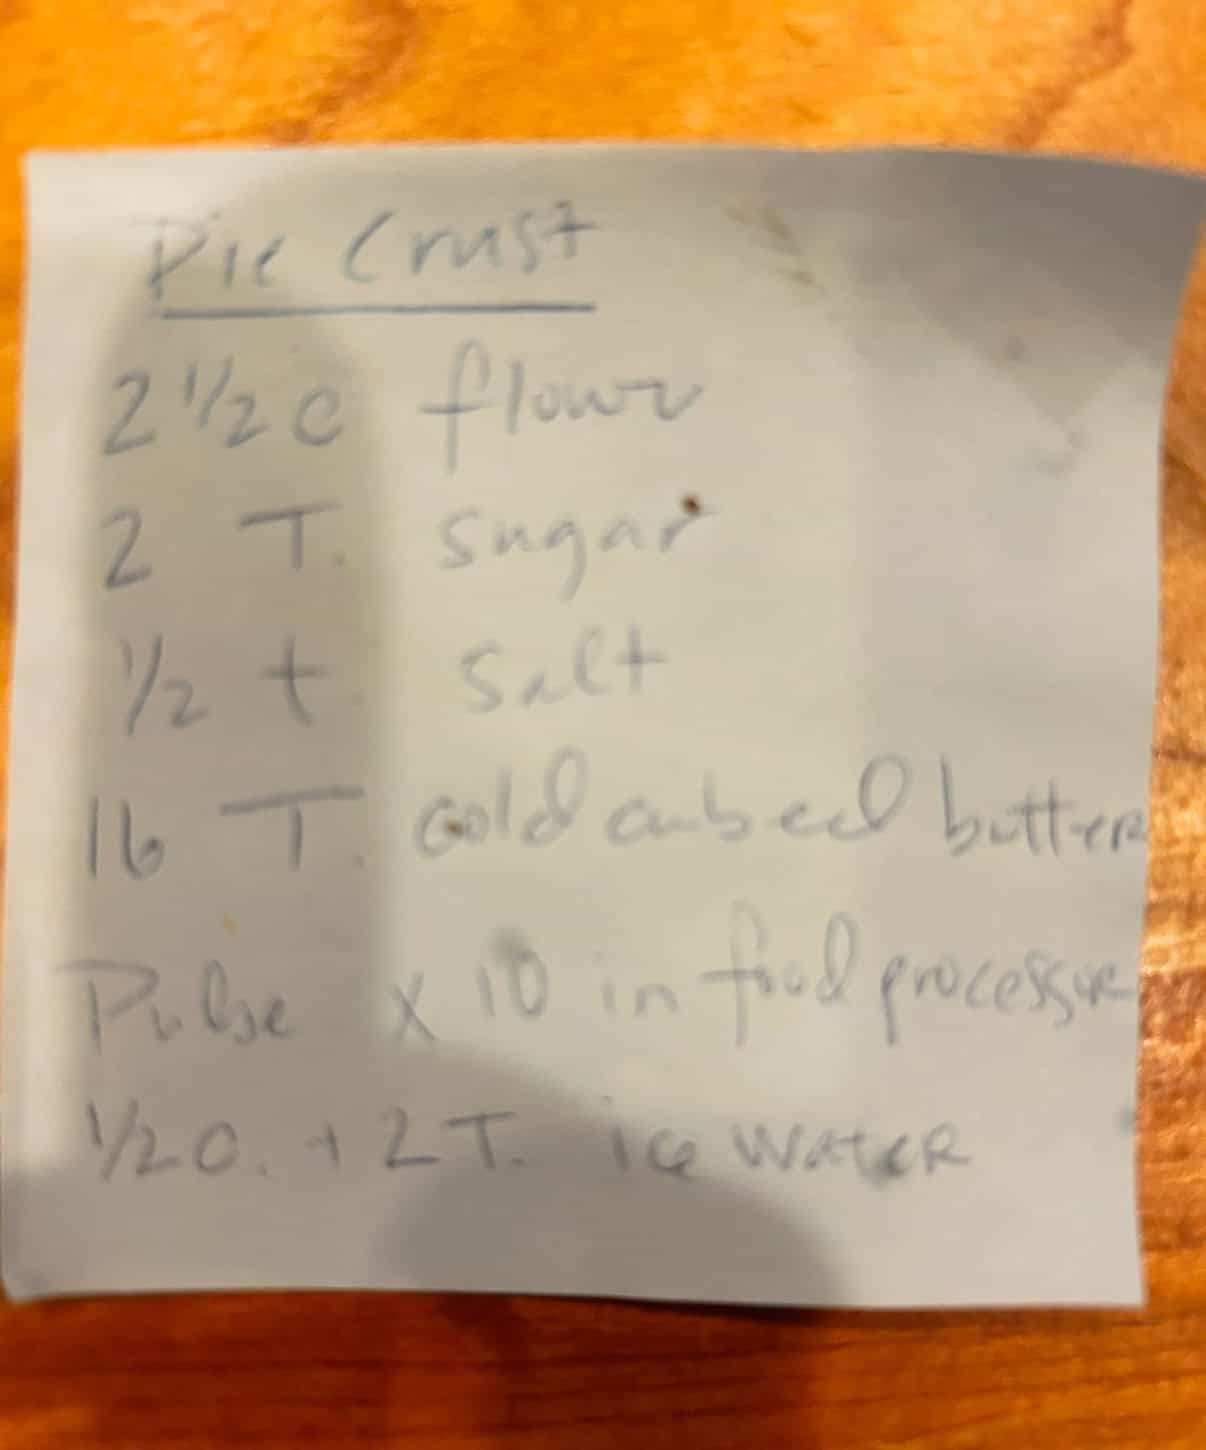 Pie Crust
2 1/2 c flour
2 T. sugar
1/2 t. salt
16 T. cold cubed butter
Pulse x 10 in food processor
1/2 c. + 2 T. ice water